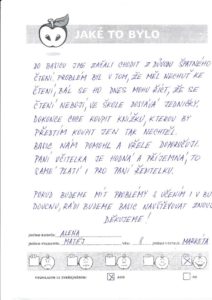 JAKÉ TO BYLO
DO BASICU JSME ZAČALI CHODIT Z DŮVODU ŠPATNÉHO
ČTENÍ. PROBLÉM BYL V TOM, ŽE MĚL NECHUŤ KE
ČTENÍ, BÁL SE HO. DNES MOHU ŘÍCT, ŽE SE
ČTENÍ NEBOJÍ, VE ŠKOLE DOSTÁVÁ JEDNIČKY.
DOKONCE CHCE KOUPIT KNÍŽKU, KTEROU BY
PŘEDTÍM KOUPIT JEN TAK NECHTĚL.
BASIC NÁM POMOHL A VŘELE DOPORUČUJI.
PANÍ UČITELKA JE HODNÁ A PŘÍJEMNÁ, TO
SAMÉ PLATÍ I PRO PANÍ ŘEDITELKU.
POKUD BUDEME MÍT PROBLÉMY S UČENÍM I V BU
DOUCNU, RÁDI BUDEME BASIC NAVŠTĚVOVAT ZNOVU
DĚKUJEME!
ALENA
MATĚJ 8 MARKÉTA
ANO